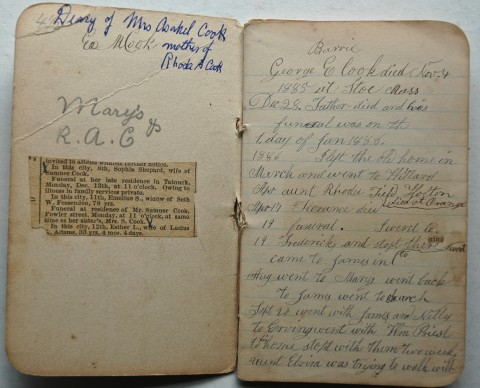 Diary of Mrs Asahel Cook
Ed M Cook mother of
Rhoda A Cook
Mary's &
R. A. C
invited to attend without further notice.
In this city, 8th, Sophia Shepard, wife of
Sumner Cook.
Funeral at her late residence in Tatnuck,
Monday, Dec. 13th, at 11 o'clock. Owing to
illness in family services private.
In this city, 11th, Emeline S., widow of Seth
W. Fessenden, 78 yrs.
Funeral at residence of Mr. Sumner Cook,
Fowler street, Monday, at 11 o'clock, at same
time as her sister's, Mrs. S. Cook.
In this city, 12th, Esther L., wife of Lucius
Adams, 33 yrs. 4 mos. 4 days.
Barrie
George E Cook died Nov. 4
1885 at Mass
Dec 28. Father died and his
funeral was on the
1 day of Jan 1886.
1886 I left the old home in
March and went to Willard
Apr aunt Rhoda
died at Orange
Apr 17 Florance died
19 funeral. I went to
19 Frederick and slept there
came to James in
Aug went to Marys went back
to James went to
Sept 22 went with James and Nelly
to Erving went with Wm Priest
home slept with them two weeks
aunt Elvira was trying to walk with